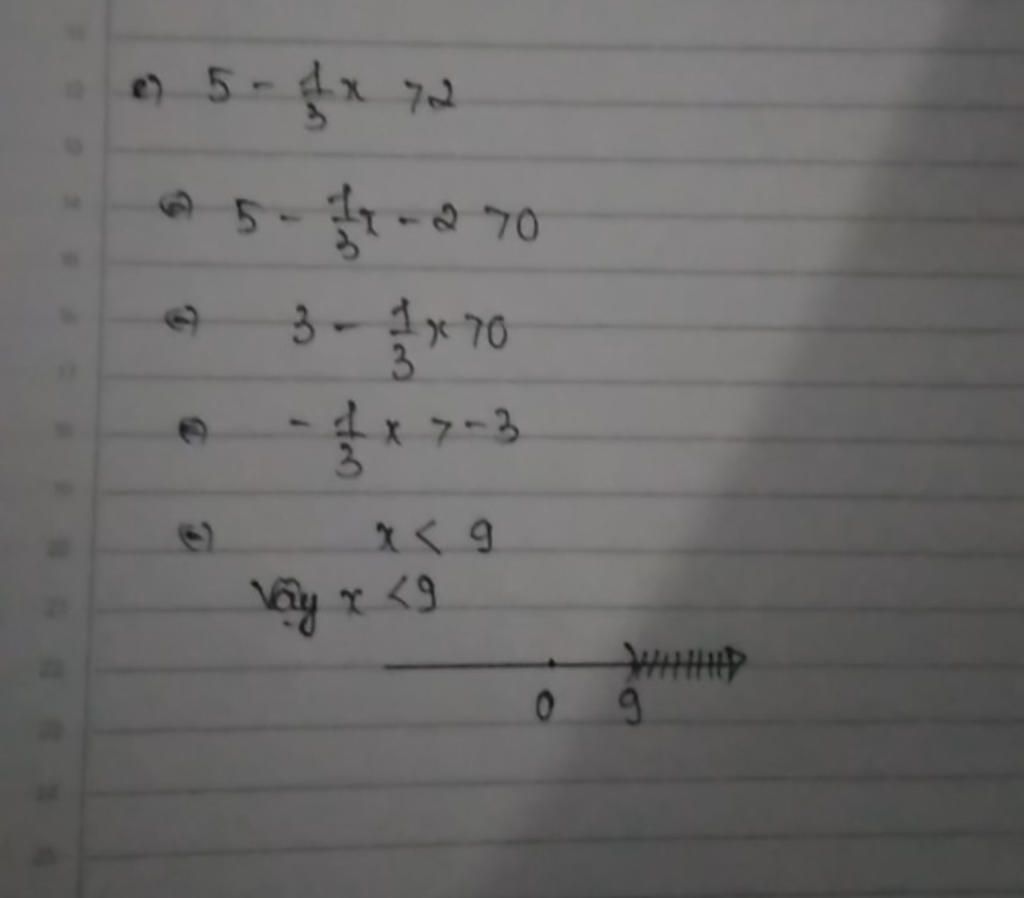 c) 5 - 1/3 x > 2
⇔ 5 - 1/3 x - 2 > 0
⇔ 3 - 1/3 x > 0
⇔ - 1/3 x > -3
⇔ x < 9
Vậy x < 9
0 9